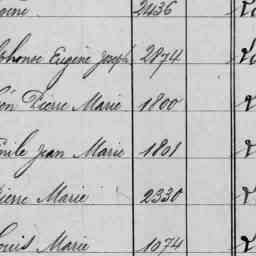 2436
phonse Eugène Joseph 2874
Pierre Marie 1800
mile Jean Marie 1801
ierre Marie 2330
ouis Marie 1074